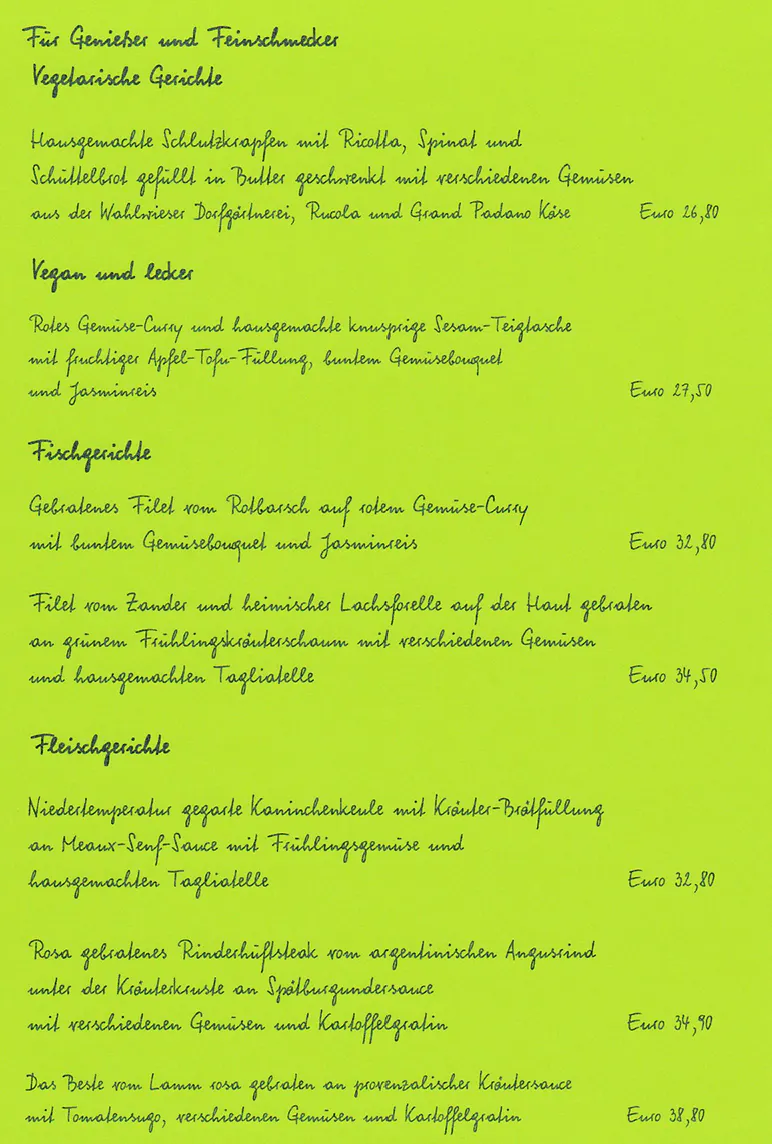 Für Genießer und Feinschmecker
Vegetarische Gerichte
Hausgemachte Schlutzkrapfen mit Ricotta, Spinat und
Schüttelbrot gefüllt in Butter geschwenkt mit verschiedenen Gemüsen
aus der Wahlwieser Dorfgärtnerei, Rucola und Grand Padano Käse Euro 26,80
Vegan und lecker
Rotes Gemüse-Curry und hausgemachte knusprige Sesam-Teigtasche
mit fruchtiger Apfel-Tofu-Füllung, buntem Gemüsebouquet
und Jasminreis Euro 27,50
Fischgerichte
Gebratenes Filet vom Rotbarsch auf rotem Gemüse-Curry
mit buntem Gemüsebouquet und Jasminreis Euro 32,80
Filet vom Zander und heimischer Lachsforelle auf der Haut gebraten
an grünem Frühlingskräuterschaum mit verschiedenen Gemüsen
und hausgemachten Tagliatelle Euro 34,50
Fleischgerichte
Niedertemperatur gegarte Kaninchenkeule mit Kräuter-Brätfüllung
an Meaux-Senf-Sauce mit Frühlingsgemüse und
hausgemachten Tagliatelle Euro 32,80
Rosa gebratenes Rinderhüftsteak vom argentinischen Angusrind
unter der Kräuterkruste an Spätburgundersauce
mit verschiedenen Gemüsen und Kartoffelgratin Euro 34,90
Das Beste vom Lamm rosa gebraten an provenzalischer Kräutersauce
mit Tomatensugo, verschiedenen Gemüsen und Kartoffelgratin Euro 38,80